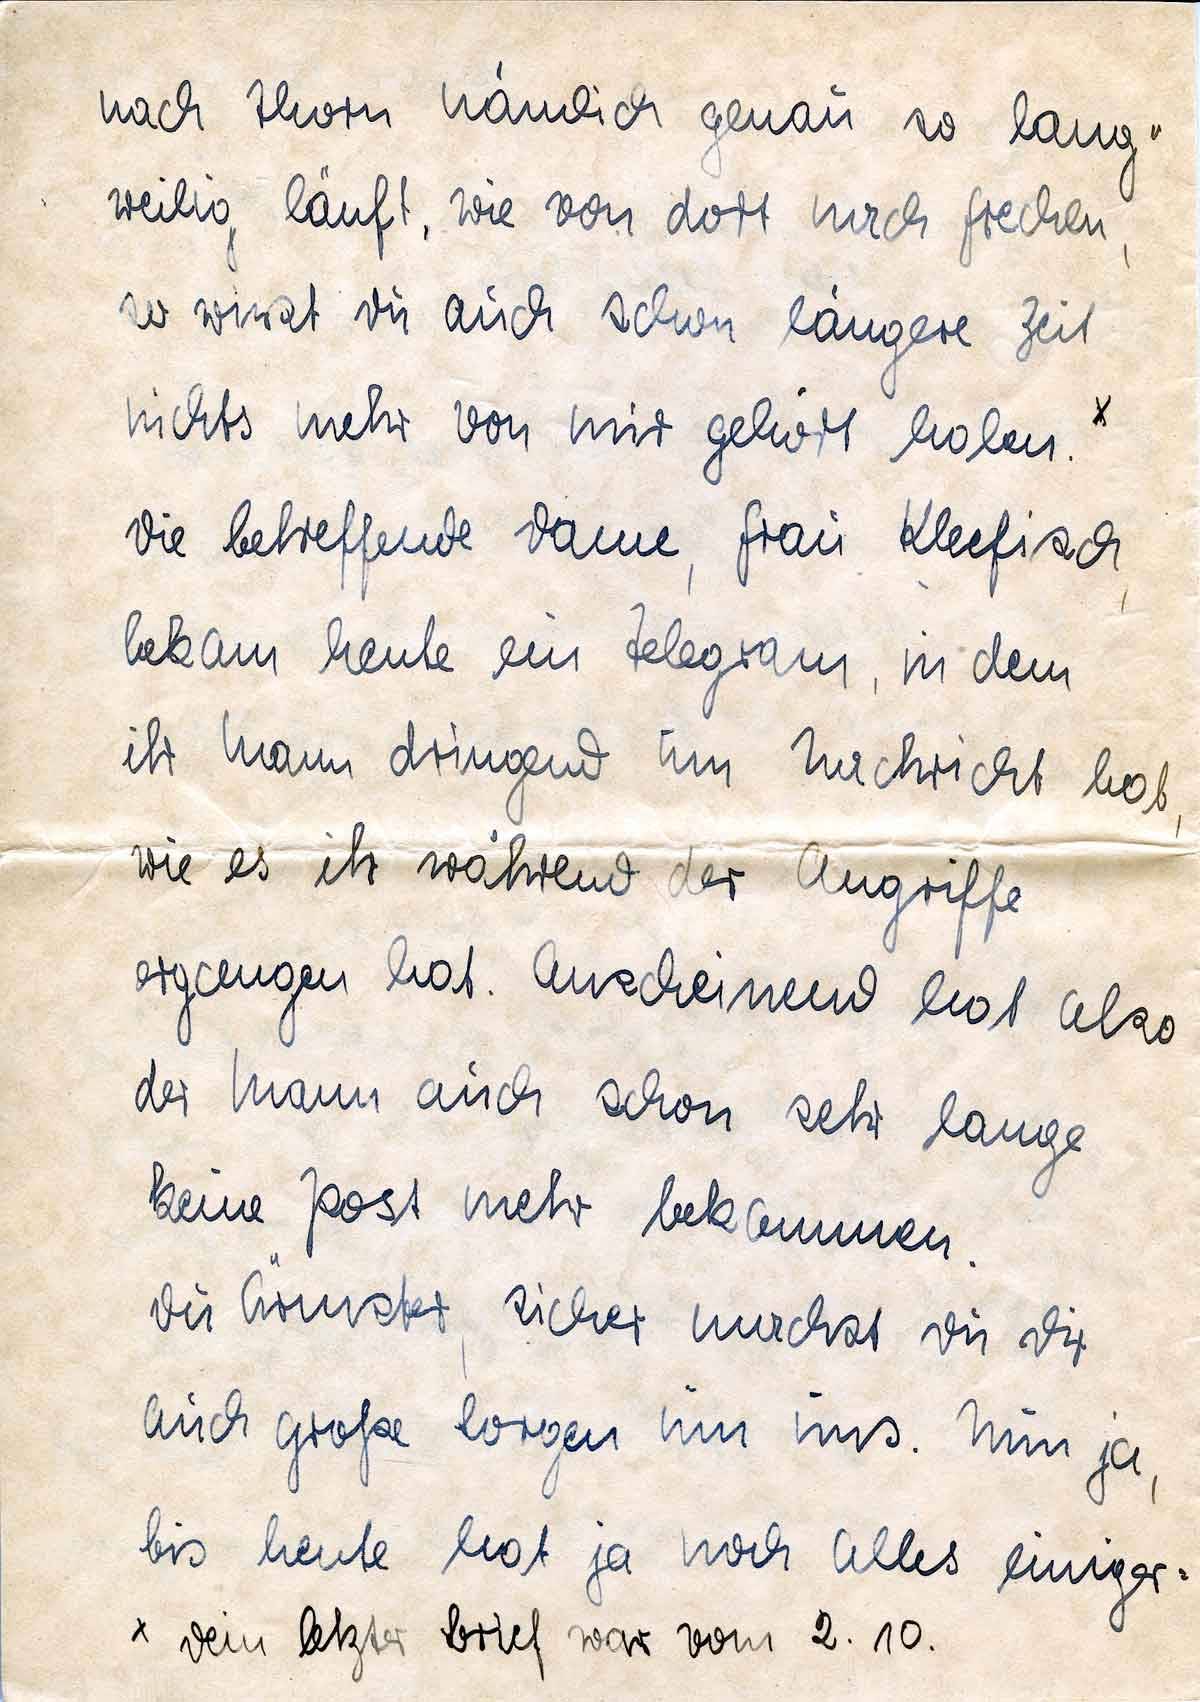 nach Thorn nämlich genau so lang"
weilig läuft, wie von dort nach Frechen,
so wirst du auch schon längere Zeit
nichts mehr von mir gehört haben. x
Die betreffende Dame, Frau Kleefisch,
bekam heute ein Telegram, in dem
ihr Mann dringend um Nachricht bat,
wie es ihr während der Angriffe
ergangen hat. Anscheinend hat also
der Mann auch schon sehr lange
keine Post mehr bekommen.
Du Ärmster, sicher machst du dir
auch große Sorgen um uns. Nun ja,
bis heute hat ja noch alles einiger-
x Dein letzter Brief war vom 2. 10.